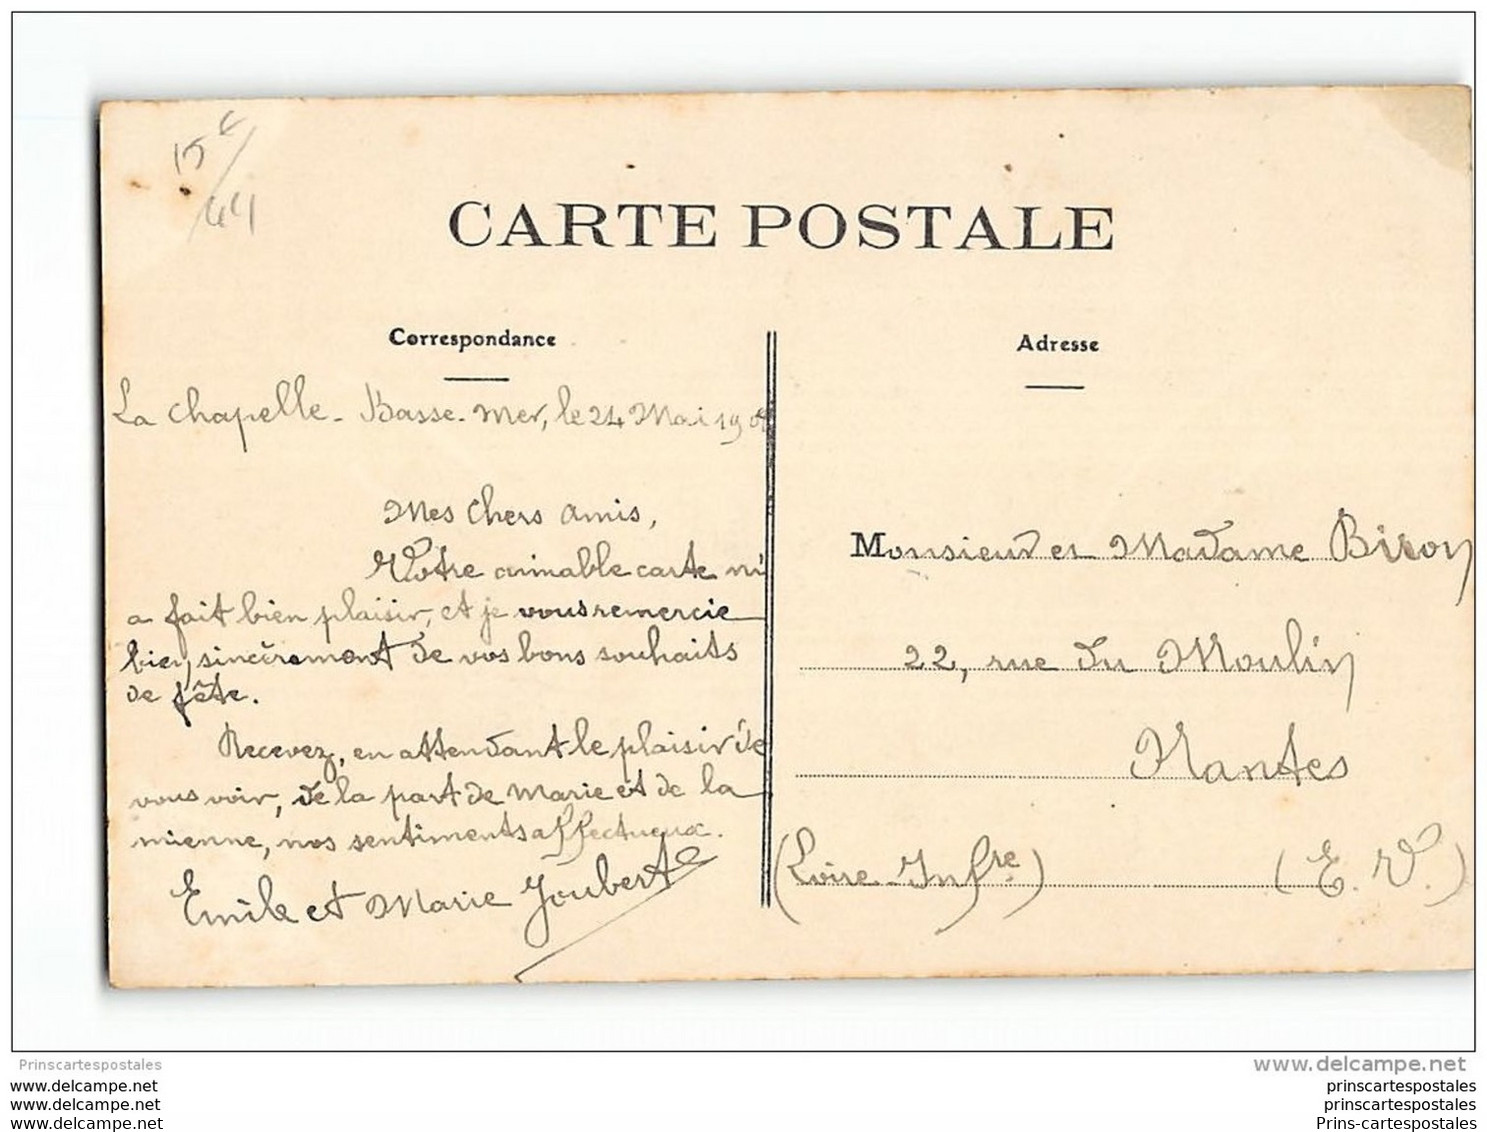 15€/44
CARTE POSTALE
Correspondance
La Chapelle-Basse-Mer, le 24 Mai 190
Mes Chers amis,
Votre aimable carte m'
a fait bien plaisir, et je vous remercie
bien sincèrement de vos bons souhaits
de fête.
Recevez, en attendant le plaisir de
vous voir, de la part de Marie et de la
mienne, nos sentiments affectueux.
Emile et Marie Joubert
Adresse
Monsieur et Madame Biron
22, rue du Moulin
Nantes
(Loire Infre) (E. V.)
Prinscartespostales
www.delcampe.net
www.delcampe.net
www.delcampe.net
www.delcampe.net
prinscartespostales
prinscartespostales
Prins-cartespostales